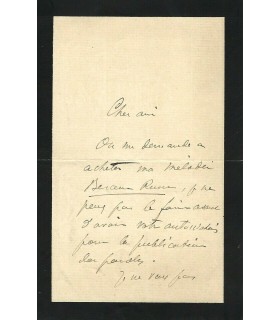 Cher ami
On me demande a
acheter ma mélodie
Berceau Russe, je ne
peux pas le faire avant
d'avoir votre autorisation
pour la publication
des paroles.
Je ne vous pas